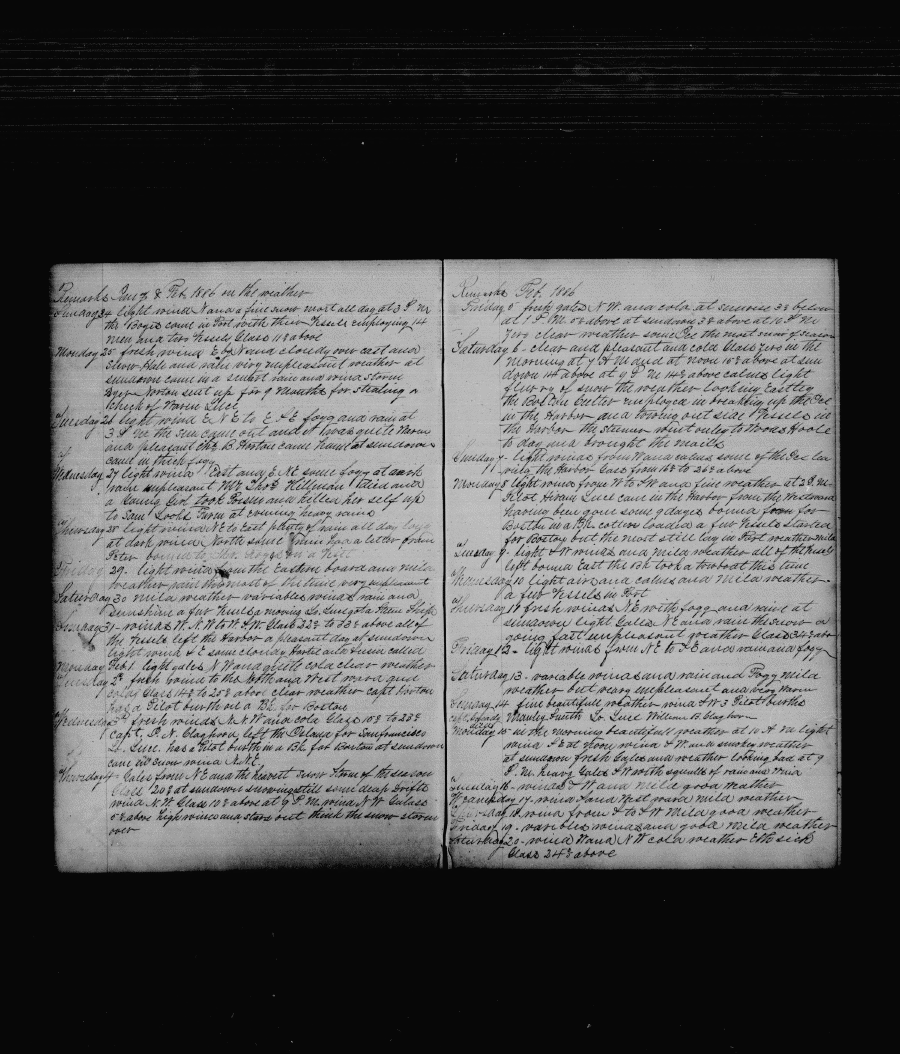 Remarks Jan, & Feb, 1886 on the weather
Sunday 24 light wind N and a fine snow most all day at 3 P M
the Boyes come in Port with three Vessels employing 14
men and two Vessels Glass 11° above
Monday 25 fresh wind E by N and cloudy over cast and
snow Hale and rain very unpleasant weather at
sundown came in a smart rain and wind storm
Dyer Norton sent up for 9 months for stealing a
Check of Waren Luce
Tuesday 26 light wind E N E to E S E fogg and rain at
3 P M the sun came out and it was quite warm
and pleasant B Norton came home at sundown
came in thick fogg
Wednesday 27 light wind East and E NE some fogy at dark
rain unpleasant Mr Thos Hillman died and
a Young Girl took Poison and killed her self up
to Sam Looks Farm at evening heavy rains
Thursday 28 light wind NE to East plenty of rain all day fogg
at dark wind North some had a letter from
Peter bound to
Friday 29 - light wind from the Eastern board and mild
weather rain the most of the time very unpleasant
Saturday 30 mild weather variable winds rain and
sunshine a few Vessels a moving Lo. Luce got a Steem Ship
Sunday 31 - winds W. N. W to W. S. W. Glass 22° to 33° above all of
the Vessels left the Harbor a pleasant day at sundown
light wind S E some cloudy and called
Monday Feb 1. light gales N W and quite cold clear weather
Tuesday 2d fresh wind to the North and West ward and
cold Glass 14° to 25° above clear weather capt Norton
had a Pilot burth on a Bk. for Boston
Wednesday 3d fresh winds N. N. W and cold Glass 10° to 23°
Capt, P. N. Claghorn left the Delawa for Sanfrancisco
Lo. Luce. has a Pilot burth in a Bk for Boston at sundown
cam in snow wind N.N.E.
Thursday 4 - Gales from N E and the heaviest snow storm of the season
Glass 20° at sundown snowing still some deap drifts
wind N. W. Glass 12° above at 9 P. M. wind N W Gales
5° above high winds and stars out think the snow storm
over
Remarks Feb. 1886
Friday 5 fresh gales N W. and cold at sunrise 3° below
at 1 P. M. 5° above at sundown 3° above at 10 P. M
Zero clear weather some Ice the most seen of season
Saturday 6 - clear and pleasant and cold Glass Zero in the
morning at 7 A M and at noon 15° above at sun
down 14 above at 9 P M 14° above calms light
flurry of snow the weather looking Eastley
the Boston Cutter employed in breaking up the Ice
in the Harbor and towing out side Vessels in
the Harbor the steamer went only to Woods Hoole
to day and brought the mails
Sunday 7 - light winds from W and calms some of the Ice lea
ving the Harbor Glass from 16° to 26° above
Monday 8 light wind from W to S W and fine weather at 2 P. M.
Pilot Hiram Luce cam in the Harbor from the Westward
having been gone some 9 days bound from for
Boston in a Bk. cotton loaded a few Vessels started
for Boston but the most still lay in Port weather mild
Tuesday 9 - light S W winds and mild weather all of the Vessels
left bound East the Bk took a towboat this time
Wednesday 10 light airs and calms and mild weather
a few Vessels in Port
Thursday 11 fresh winds N E with fogg and rain at
sundown light Gales NE and rain the snow a
going fast unpleasant weather Glass 38° above
Friday 12 - light winds from N E to S E and rain and foggy
Saturday 13 - variable winds and rain and Foggy mild
weather but very unpleasant and very warm
Sunday 14 fine beautifull weather wind S W 3 Pilot burths
Manley Smith Lo. Luce William B. Claghorn
Monday 15 in the morning beautifull weather at 10 A M light
wind S E at Noon wind S W and smokey weather
at sundown fresh Gales and weather looking bad at 9
P. M. heavy Gales S W with squalls of rain and wind
Tuesday 16 - winds S W and mild good weather
Wednesday 17 - wind S and West ward mild weather
Thursday 18 wind from S to S W mild good weather
Friday 19 - variable winds and good mild weather
Saturday 20 - wind W and N W cold weather Eth sick
Glass 24° above